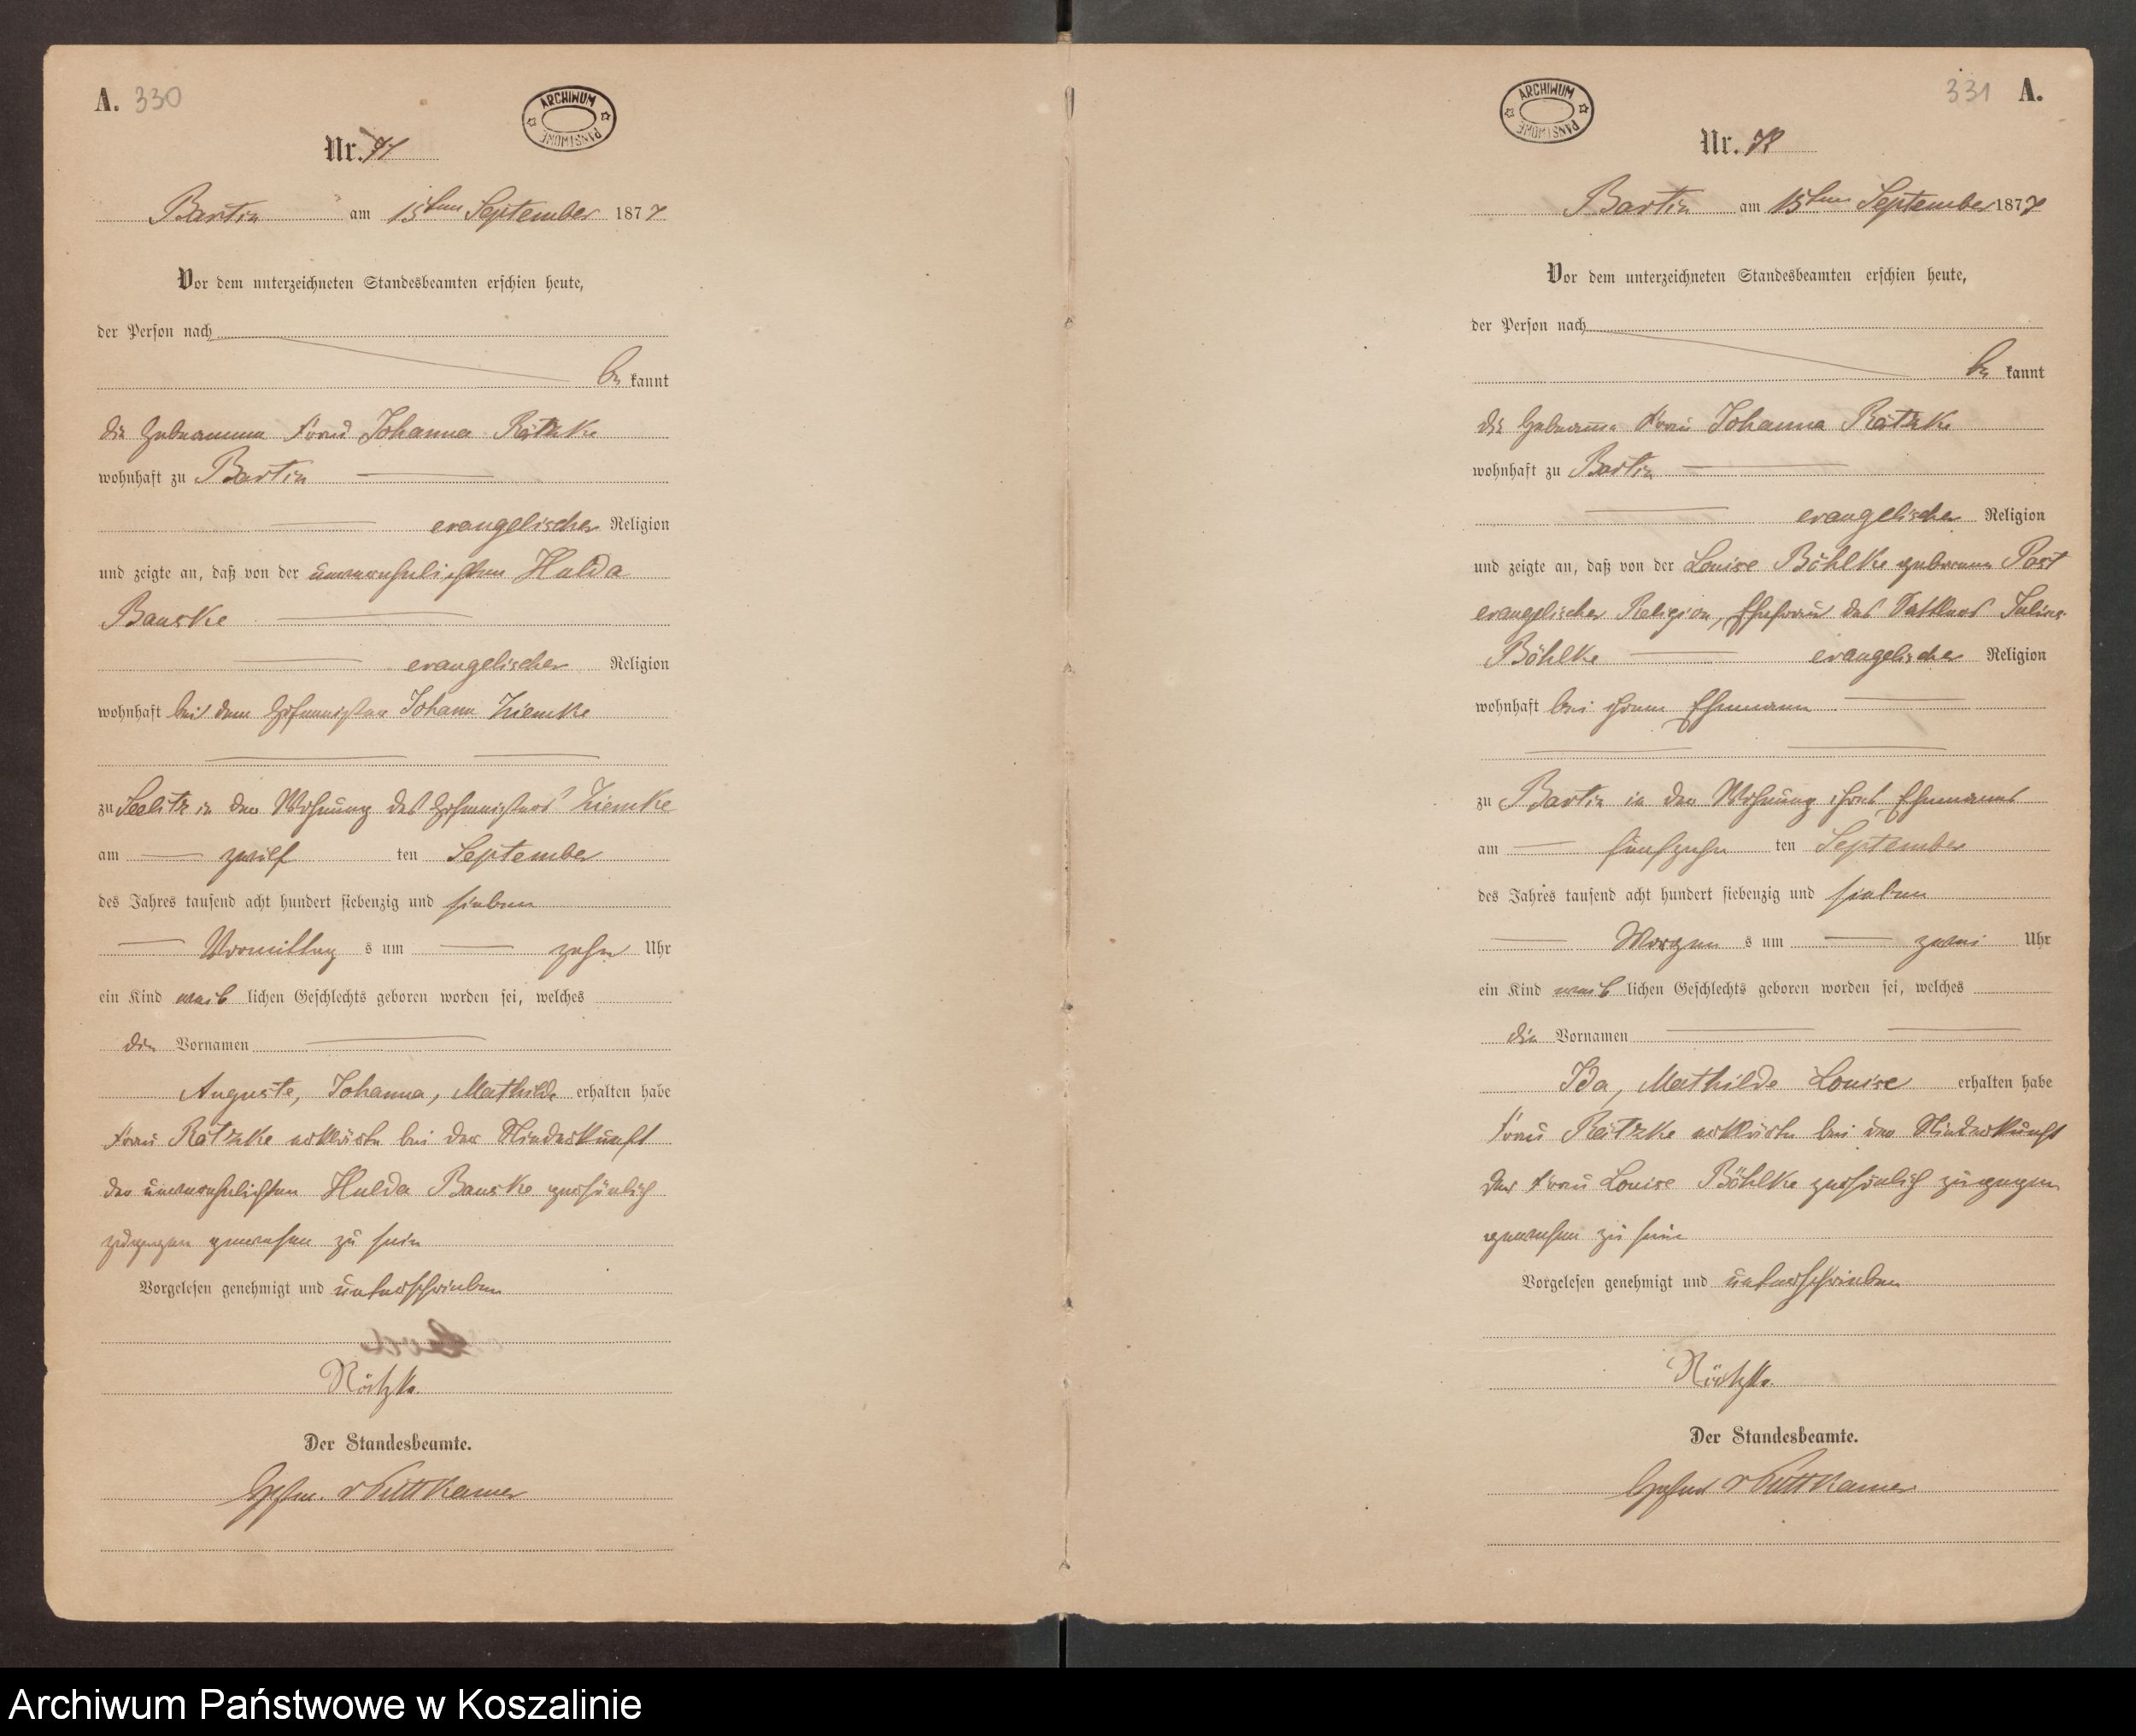 A. 330
ARCHIWUM PAŃSTWOWE
Nr. 71
Bartin am 15ten September 1877
Vor dem unterzeichneten Standesbeamten erschien heute,
der Person nach
be kannt
die Hebeamme Frau Johanna Rätzke
wohnhaft zu Bartin
evangelischer Religion
und zeigte an, daß von der unverehelichten Hulda
Banske
evangelischer Religion
wohnhaft bei dem Hofmeister Johann Ziemke
zu Seelitz in der Wohnung des Hofmeisters Ziemke
am zwölf ten September
des Jahres tausend acht hundert siebenzig und sieben
Vormittag s um zehn Uhr
ein Kind weib lichen Geschlechts geboren worden sei, welches
die Vornamen
Auguste, Johanna, Mathilde erhalten habe
Frau Rätzke erklärte bei der Niederkunft
der unverehelichten Hulda Banske persönlich
zugegen gewesen zu sein
Vorgelesen genehmigt und unterschrieben
Rätzke.
Der Standesbeamte.
v Puttkamer
331 A.
ARCHIWUM PAŃSTWOWE
Nr. 72
Bartin am 15ten September 1877
Vor dem unterzeichneten Standesbeamten erschien heute,
der Person nach
be kannt
die Hebeamme Frau Johanna Rätzke
wohnhaft zu Bartin
evangelischer Religion
und zeigte an, daß von der Louise Böhlke geborene Post
evangelischer Religion, Ehefrau des Sattlers Julius
Böhlke evangelischer Religion
wohnhaft bei ihrem Ehemann
zu Bartin in der Wohnung ihres Ehemanns
am fünfzehn ten September
des Jahres tausend acht hundert siebenzig und sieben
Morgen s um zwei Uhr
ein Kind weib lichen Geschlechts geboren worden sei, welches
die Vornamen
Ida, Mathilde Louise erhalten habe
Frau Rätzke erklärte bei der Niederkunft
der Frau Louise Böhlke persönlich zugegen
gewesen zu sein
Vorgelesen genehmigt und unterschrieben
Rätzke.
Der Standesbeamte.
v Puttkamer
Archiwum Państwowe w Koszalinie